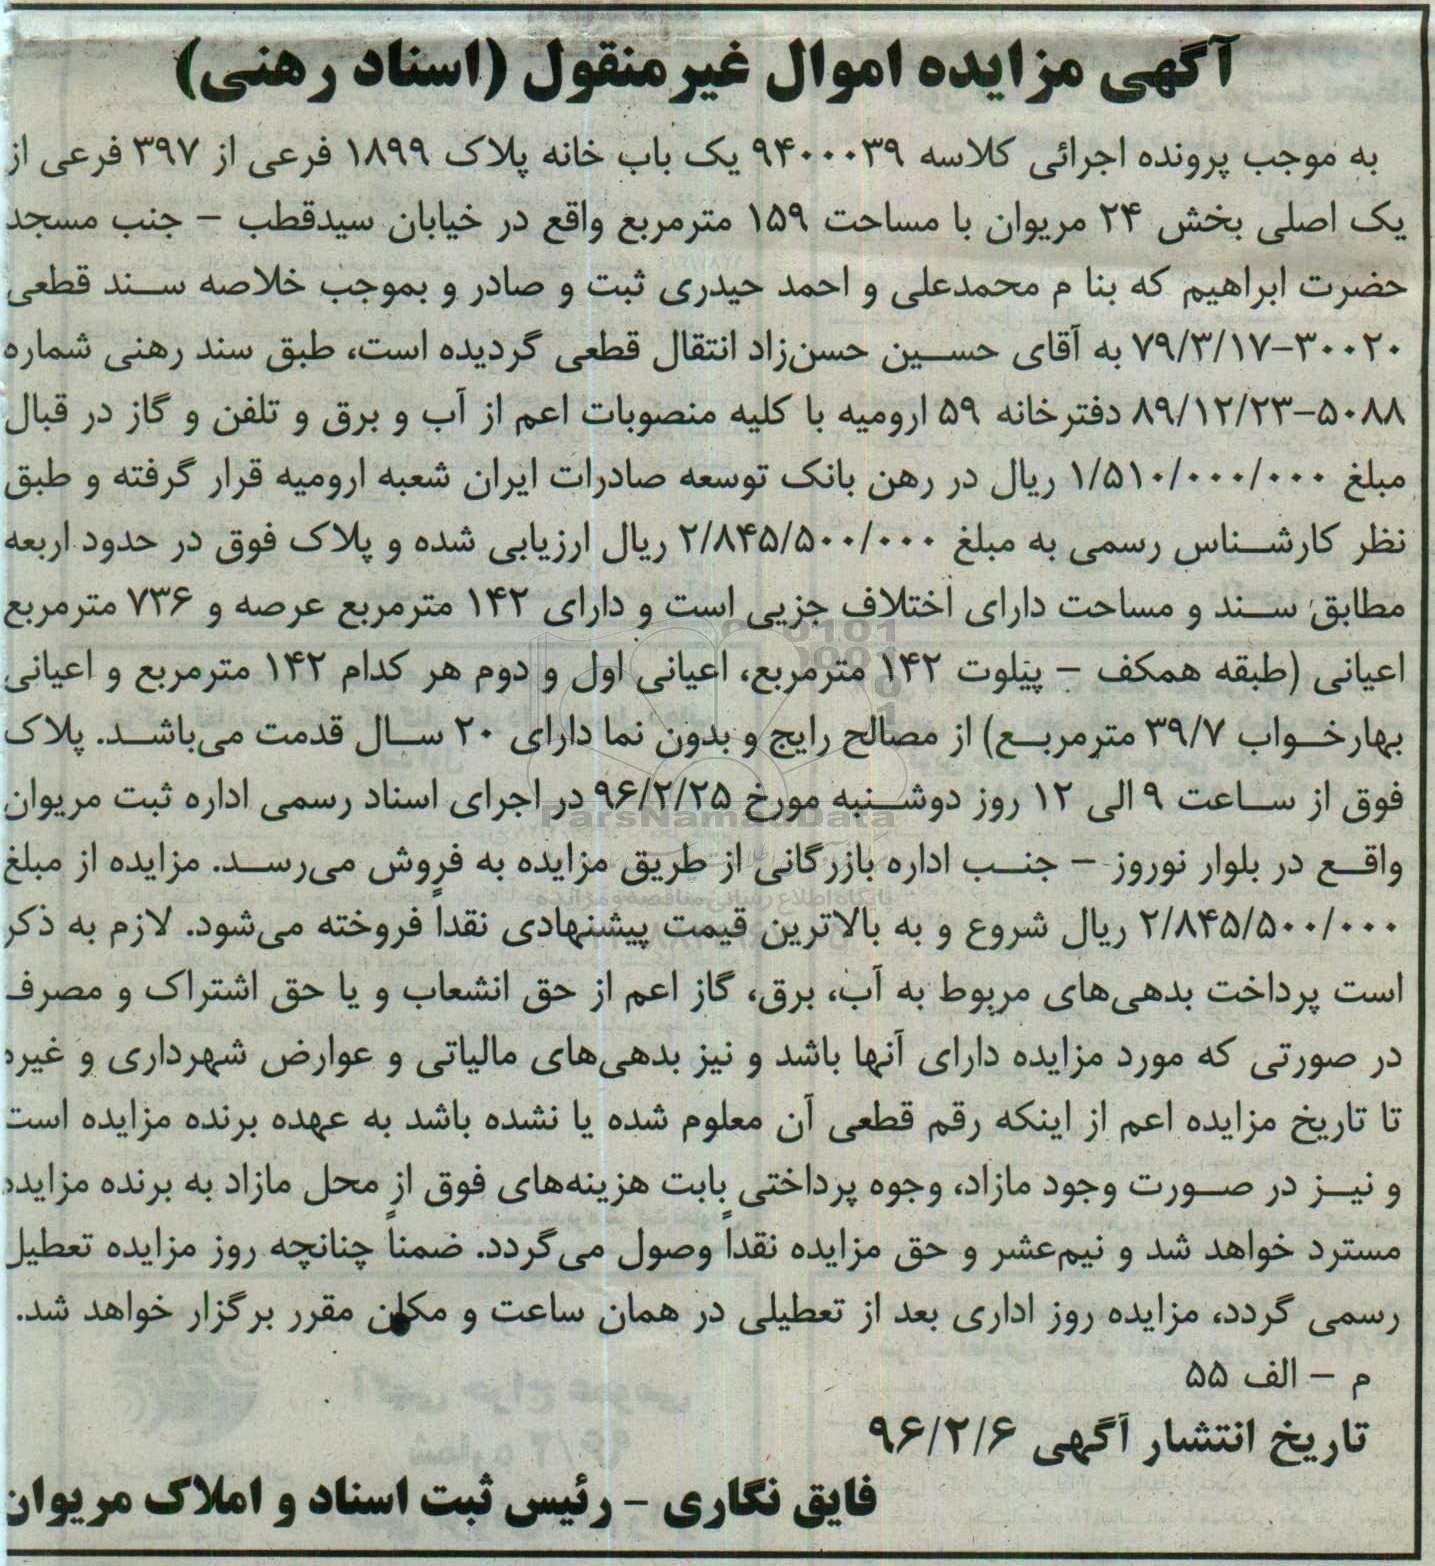 آگهی مزایده اموال غیرمنقول (اسناد رهنی)
به موجب پرونده اجرائی کلاسه ۹۴۰۰۰۳۹ یک باب خانه پلاک ۱۸۹۹ فرعی از ۳۹۷ فرعی از
یک اصلی بخش ۲۴ مریوان با مساحت ۱۵۹ مترمربع واقع در خیابان سیدقطب – جنب مسجد
حضرت ابراهیم که بنا م محمدعلی و احمد حیدری ثبت و صادر و بموجب خلاصه سند قطعی
۳۰۰۲۰-۷۹/۳/۱۷ به آقای حسین حسن‌زاد انتقال قطعی گردیده است، طبق سند رهنی شماره
۵۰۸۸-۸۹/۱۲/۲۳ دفترخانه ۵۹ ارومیه با کلیه منصوبات اعم از آب و برق و تلفن و گاز در قبال
مبلغ ۱/۵۱۰/۰۰۰/۰۰۰ ریال در رهن بانک توسعه صادرات ایران شعبه ارومیه قرار گرفته و طبق
نظر کارشناس رسمی به مبلغ ۲/۸۴۵/۵۰۰/۰۰۰ ریال ارزیابی شده و پلاک فوق در حدود اربعه
مطابق سند و مساحت دارای اختلاف جزیی است و دارای ۱۴۲ مترمربع عرصه و ۷۳۶ مترمربع
اعیانی (طبقه همکف – پیلوت ۱۴۲ مترمربع، اعیانی اول و دوم هر کدام ۱۴۲ مترمربع و اعیانی
بهارخواب ۳۹/۷ مترمربع) از مصالح رایج و بدون نما دارای ۲۰ سال قدمت می‌باشد. پلاک
فوق از ساعت ۹ الی ۱۲ روز دوشنبه مورخ ۹۶/۲/۲۵ در اجرای اسناد رسمی اداره ثبت مریوان
واقع در بلوار نوروز – جنب اداره بازرگانی از طریق مزایده به فروش می‌رسد. مزایده از مبلغ
۲/۸۴۵/۵۰۰/۰۰۰ ریال شروع و به بالاترین قیمت پیشنهادی نقداً فروخته می‌شود. لازم به ذکر
است پرداخت بدهی‌های مربوط به آب، برق، گاز اعم از حق انشعاب و یا حق اشتراک و مصرف
در صورتی که مورد مزایده دارای آنها باشد و نیز بدهی‌های مالیاتی و عوارض شهرداری و غیره
تا تاریخ مزایده اعم از اینکه رقم قطعی آن معلوم شده یا نشده باشد به عهده برنده مزایده است
و نیز در صورت وجود مازاد، وجوه پرداختی بابت هزینه‌های فوق از محل مازاد به برنده مزایده
مسترد خواهد شد و نیم‌عشر و حق مزایده نقداً وصول می‌گردد. ضمناً چنانچه روز مزایده تعطیل
رسمی گردد، مزایده روز اداری بعد از تعطیلی در همان ساعت و مکان مقرر برگزار خواهد شد.
م – الف ۵۵
تاریخ انتشار آگهی ۹۶/۲/۶
فایق نگاری – رئیس ثبت اسناد و املاک مریوان
ParsNamadData
پایگاه اطلاع رسانی مناقصه و مزایده